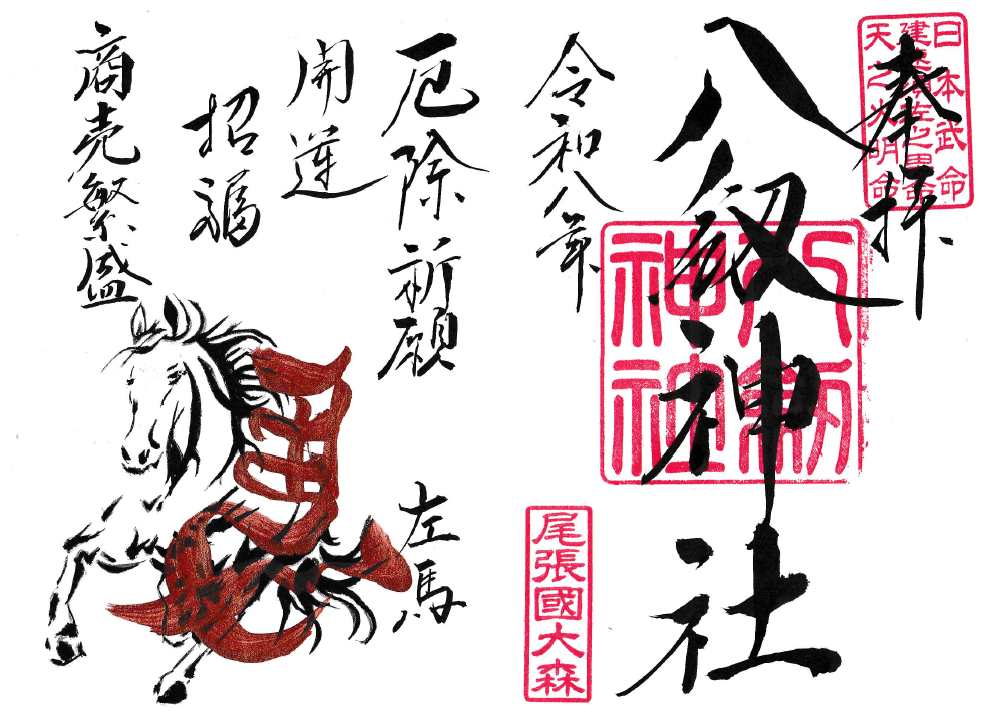 奉拝
日本武命
建速須佐之男命
天之火明命
八剱神社
八剱
神社
令和八年
尾張國大森
厄除祈願
開運
招福
商売繁盛
左馬